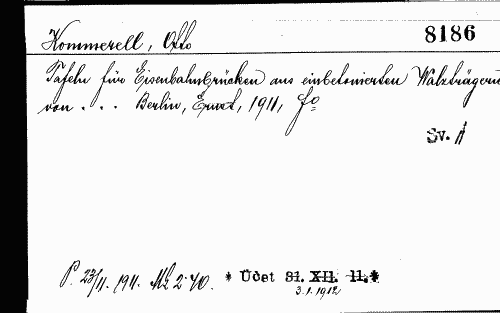 Kommerell, Otto 8186
Tafeln für Eisenbahnbrücken aus einbetonierten Walzträgern
von . . . Berlin, Ernst, 1911, fo
Sv. 1
P. 23/11. 1911. Mk 2·40. * Účet 31. XII. 11.*
3.1.1912